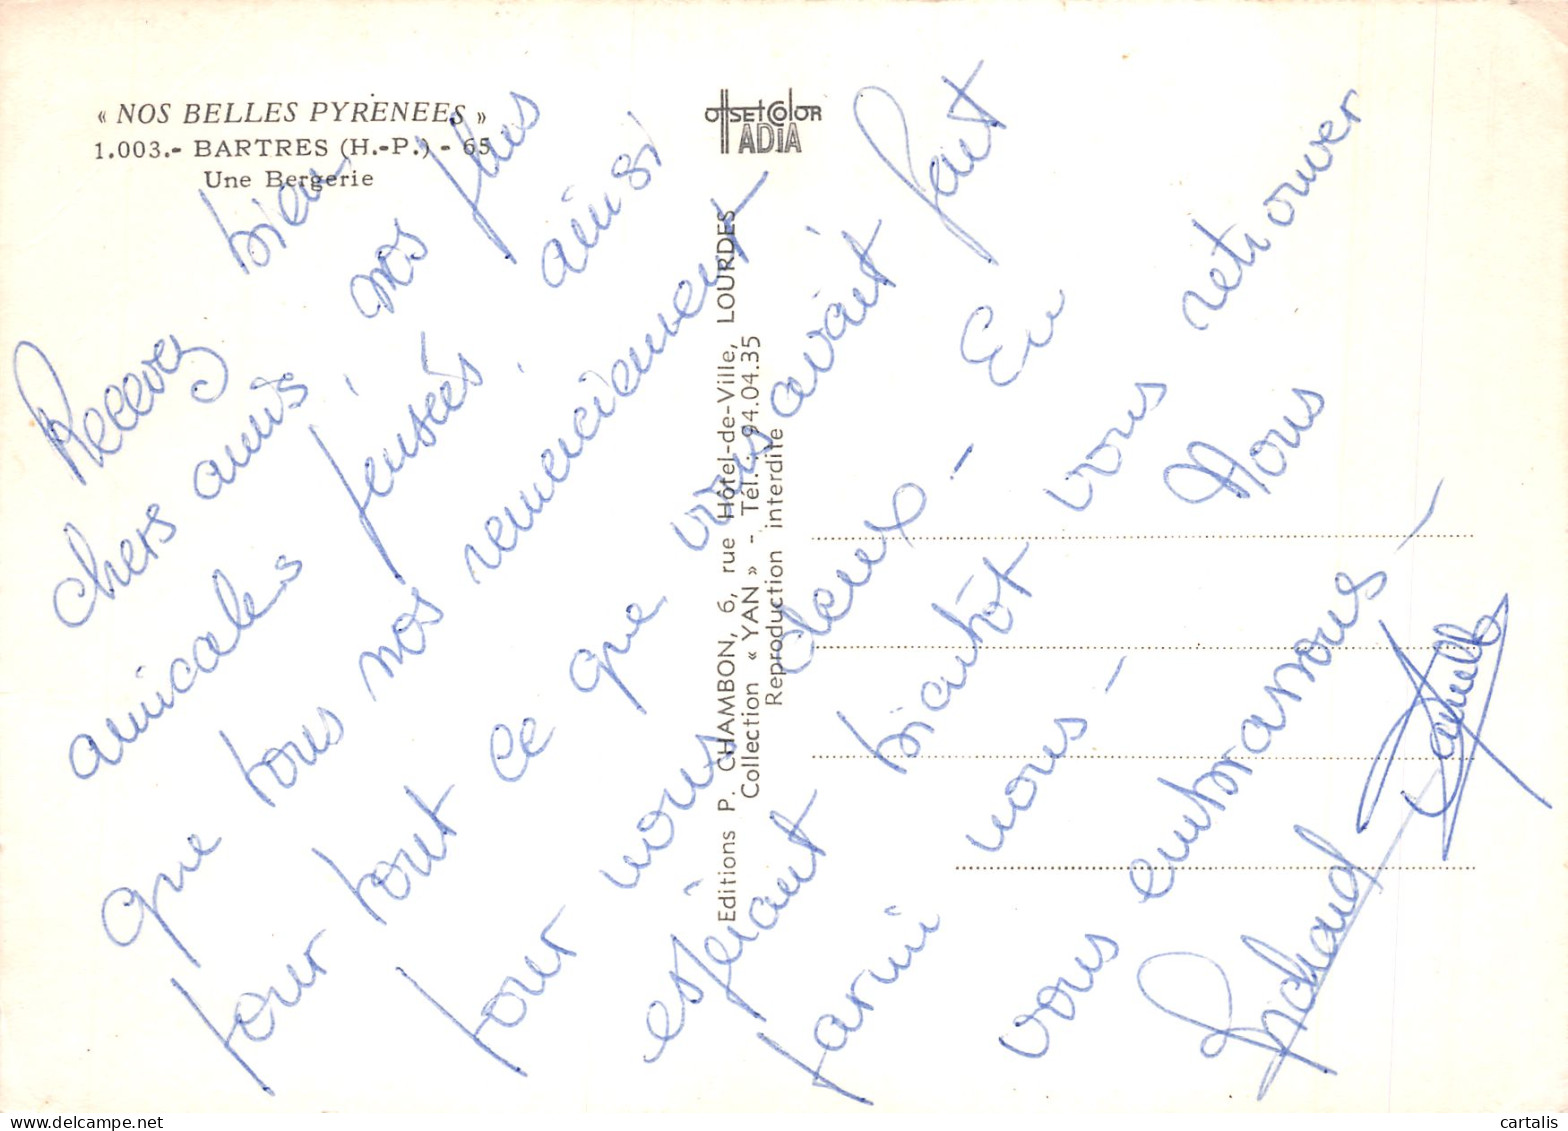 « NOS BELLES PYRÉNEES »
1.003.- BARTRES (H.-P.) - 65
Une Bergerie
offsetcolor
ADIA
Editions P. CHAMBON, 6, rue Hôtel-de-Ville, LOURDES
Collection « YAN » - Tél. : 94.04.35
Reproduction interdite
Recevez bien
chers amis, nos plus
amicales pensées, ainsi
que tous nos remerciement
pour tout ce que vous avait fait
pour nous deux - En
espérant bientôt vous retrouver
parmi nous - Nous
vous embrassons -
Richard
delcampe.net
cartalis